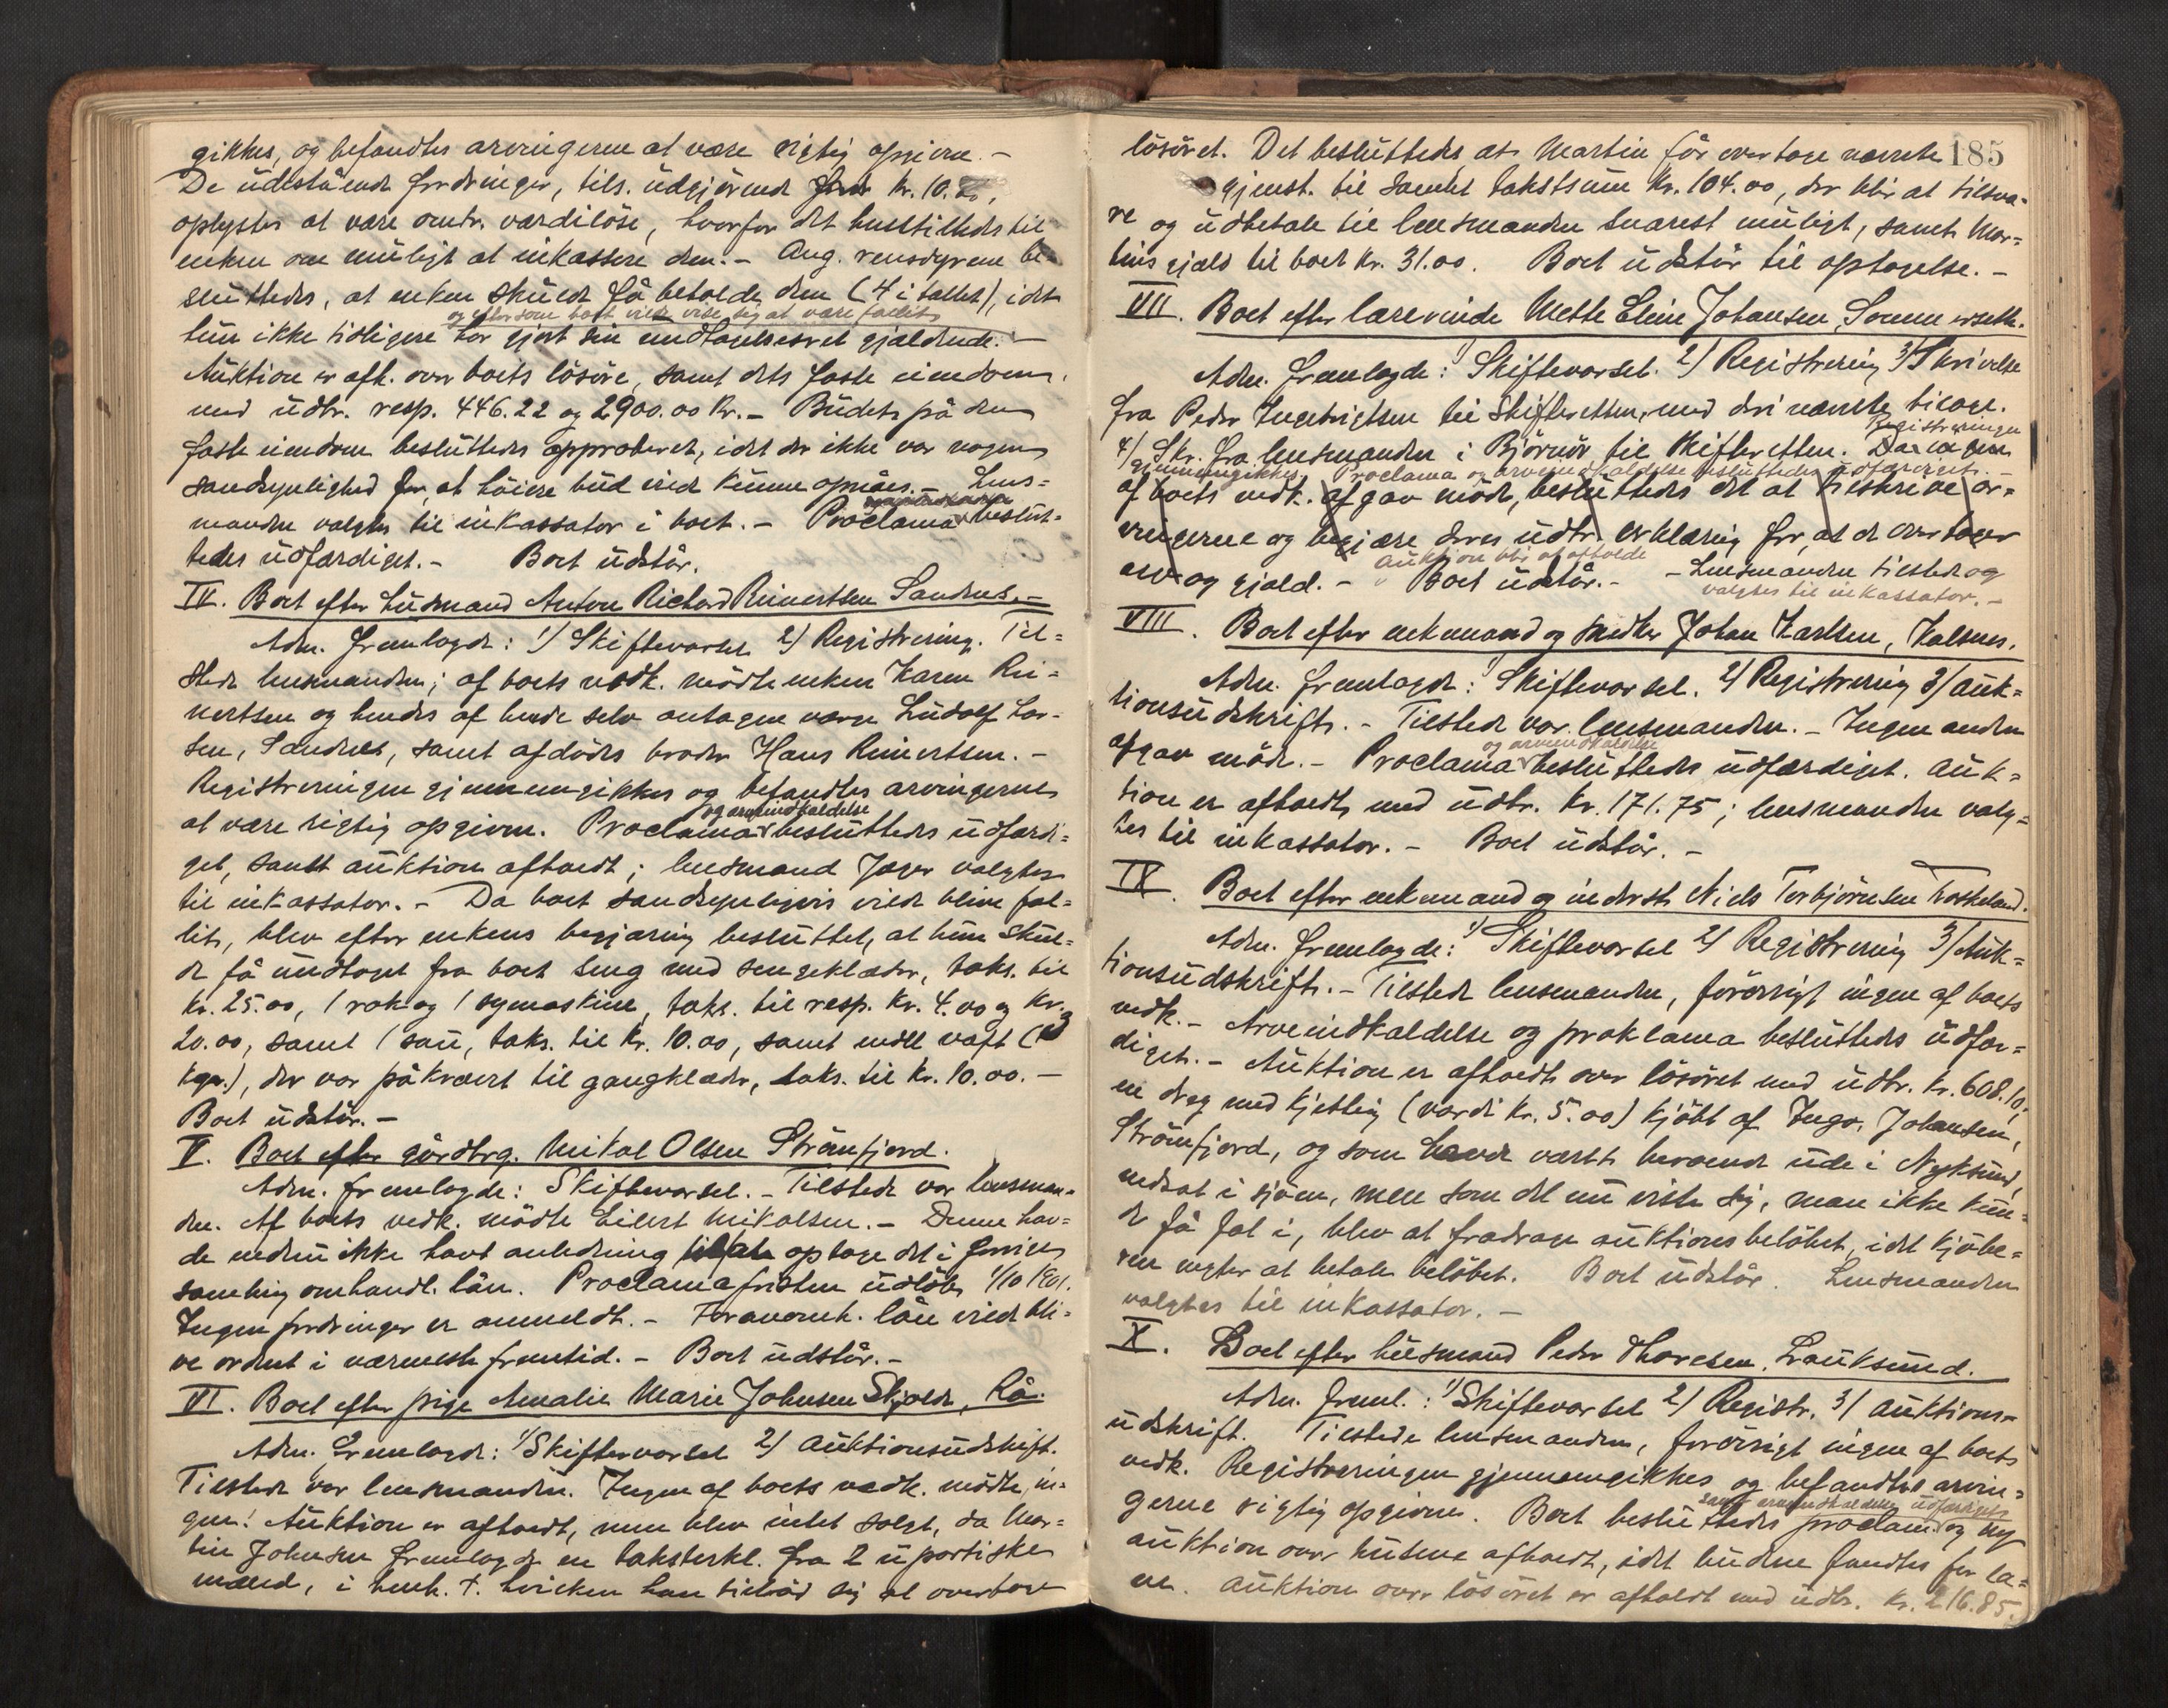 gikkes, og befandtes arvingerne at være rigtig opgivne. -
De udestående fordringer, tils. udgjørende Kr. 10.
oplystes at være omtr. værdiløse, hvorfor det henstilledes til
enken om muligt at inkassere dem. - Ang. rensdyrene be-
sluttedes, at enken skulde få beholde dem (4 i tallet), idet
og eftersom boet vilde vise sig at være fallit
hun ikke tidligere har gjort sin undtagelsesret gjældende. -
Auktion er afh. over boets løsøre, samt dets faste eiendom,
med udbr. resp. 446.22 og 2900.00 Kr. - Budet på den
faste eiendom besluttedes approberet, idet der ikke var nogen
sandsynlighed for, at høiere bud vilde kunne opnåes. - Lens=
manden valgtes til inkassator i boet. - Proclama beslut=
tedes udfærdiget. - Boet udstår.
IV. Boet efter husmand Anton Richard Reinertsen Sandnes. -
Adm. fremlagde: 1) Skiftevarsel 2) Registrering. Til=
stede lensmanden; af boets vedk. mødte enken Karen Rei=
nertsen og hendes af hende selv antagne værge Ludolf Lar-
sen, Sandnes, samt afdødes broder Hans Reinertsen. -
Registreringen gjennemgikkes og befandtes arvingerne
og arveindkaldelse
at være rigtig opgivne. Proclama besluttedes udfærdi=
get, samt auktion afholdt; lensmand Jæger valgtes
til inkassator. - Da boet sandsynligvis vilde blive fal=
lit, blev efter enkens begjæring besluttet, at hun skul=
de få undtaget fra boet seng med sengeklæder, taks. til
kr. 25.00, 1 rok og 1 symaskine, taks. til resp. Kr. 4.00 og Kr.
20.00, samt 1 sau, taks. til Kr. 10.00, samt endel vaft (3
kgr.), der var påkrævet til gangklæder, taks. til Kr. 10.00. -
Boet udstår. -
V. Boet efter gårdbrg. Mikal Olsen Strømfjord.
Adm. fremlagde: Skiftevarsel. - Tilstede var lensman=
den. Af boets vedk. mødte Eilert Mikalsen. - Denne hav=
de endnu ikke havt anledning til at optage det i forrige
samling omhandl. lån. Proclamafristen udløb 1/10 1901.
Ingen fordringer er anmeldt. - Foranomh. lån vilde bli=
ve ordnet i nærmeste fremtid. - Boet udstår. -
VI. Boet efter pige Amalie Marie Johnsen Skjolde, Rå.
Adm. fremlagde: 1) Skiftevarsel 2) Auktionsudskrift.
Tilstede var lensmanden. Ingen af boets vedk. mødte in-
gen! Auktion er afholdt, men blev intet solgt, da Mar=
tin Johnsen fremlagde en taksterkl. fra 2 upartiske
mænd, i henh. t. hvilken han tilbød sig at overtage
185
løsøret. Det besluttedes at Martin får overtage nævnte
gjenst. til samlet takstsum Kr. 104.00, der blir at tilsva=
re og udbetale til lensmanden snarest muligt, samt Mar=
tins gjæld til boet Kr. 31.00. Boet udstår til optagelse. -
VII. Boet efter lærerinde Mette Eline Johansen
Adm. fremlagde: 1) Skiftevarsel. 2) Registrering 3) Skrivelse
fra Peder Ingebrigtsen til skifteretten, med deri nævnte bilage.
Registreringen
4) Skr. fra lensmanden i Bjørnør til skifteretten. Da ingen
gjennemgikkes. Proclama og arveindkaldelse besluttedes udfærdiget. -
af boets vedk. afgav møde, besluttedes det at tilskrive ar=
vingerne og begjære deres udtr. erklæring for, at de overtager
Auktion blir at afholde
arv og gjæld. - Boet udstår. - - Lensmanden tilstede og
valgtes til inkassator. -
VIII. Boet efter enkemand og Johan Karlsen, Kalsnes.
Adm. fremlagde: 1) Skiftevarsel. 2) Registrering 3) Auk=
tionsudskrift. - Tilstede var lensmanden. - Ingen anden
og arveindkaldelse
afgav møde. - Proclama besluttedes udfærdiget. Auk=
tion er afholdt med udbr. Kr. 171.75; lensmanden valg=
tes til inkassator. - Boet udstår. -
IX. Boet efter enkemand og inderst Niels Torbjørnsen
Adm. fremlagde: 1) Skiftevarsel 2) Registrering 3) Auk=
tionsudskrift. - Tilstede lensmanden, førøvrigt ingen af boets
vedk. - Arveindkaldelse og proklama besluttedes udfær=
diget. - Auktion er afholdt over løsøret med udbr. Kr. 608.10,
en dreg med kjetting (værdi Kr. 5.00) kjøbt af Ingv. Johansen,
Strømfjord, og som havde været beroende ude i Nyksund,
nedsat i sjøen, men som det nu viste sig, man ikke kun=
de få fat i, blev at fradrage auktionsbeløbet, idet kjøbe=
ren negter at betale beløbet. Boet udstår. Lensmanden
valgtes til inkassator. -
X. Boet efter husmand Peder Thoresen,
Adm. freml.: 1) Skiftevarsel 2) Registr. 3) Auktions=
udskrift. Tilstede lensmanden, forøvrigt ingen af boets
vedk. Registreringen gjennemgikkes og befandtes arvin=
samt arveindkaldelse udfærdiget
gerne rigtig opgivne. Boet besluttedes proclam. og ny
auktion over husene afholdt, idet budene fandtes for la=
ve. Auktion over løsøret er afholdt med udbr. Kr. 216.85.